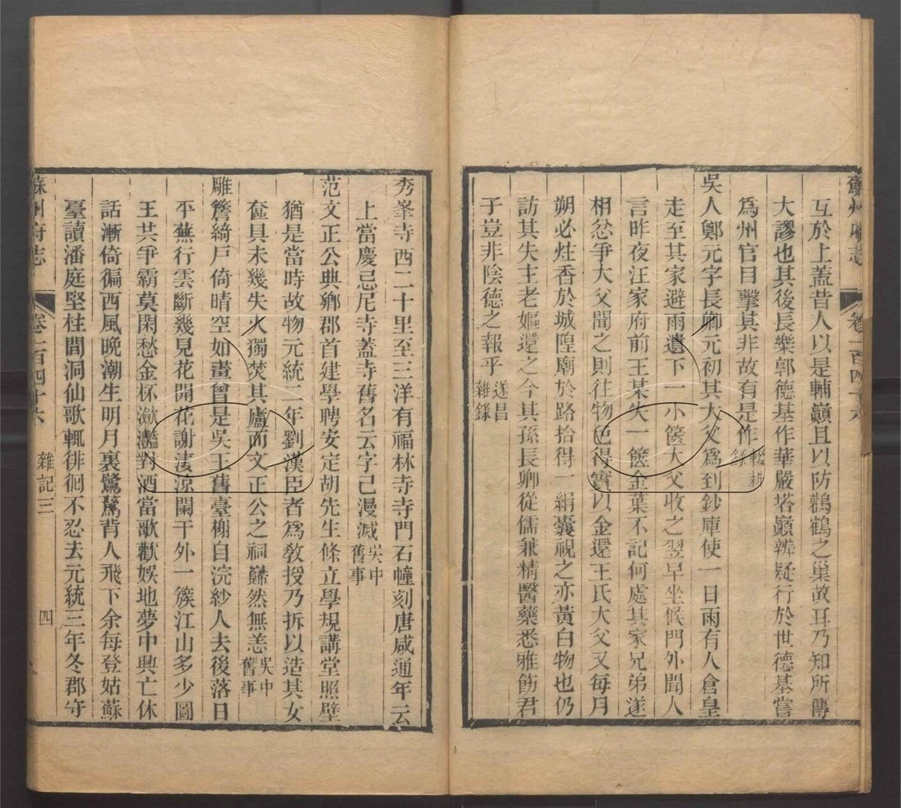 蘇州府志 卷一百四十六
互於上蓋昔人以是輔巓且以防鸛鶴之巢故耳乃知所傳
大謬也其後長樂郭德基作華嚴塔巓辨疑行於世德基嘗
為州官目擊其非故有是作輟耕錄
吳人鄭元字長卿元初其大父為到鈔庫使一日雨有人倉皇
走至其家避雨遺下一小篋大父收之翌早坐候門外聞人
言昨夜汪家府前王某失一篋金葉不記何處其家兄弟遂
相忿爭大父聞之則往物色得實以金還王氏大父又每月
朔必炷香於城隍廟於路拾得一絹囊視之亦黃白物也仍
訪其失主老嫗還之今其孫長卿從儒兼精醫藥悉雅飭君
子豈非陰德之報乎遂昌雜錄
秀峯寺西二十里至三洋有福林寺寺門石幢刻唐咸通年云
上當慶忌尼寺蓋寺舊名云字已漫滅吳中舊事
范文正公典鄉郡首建學聘安定胡先生條立學規講堂照壁
猶是當時故物元統二年劉漢臣者為敎授乃拆以造其女
奩具未幾失火獨焚其廬而文正公之祠巋然無恙吳中舊事
雕簷綺戸倚晴空如畫曾是吳王舊臺榭自浣紗人去後落日
平蕪行雲斷幾見花開花謝淒涼闌干外一簇江山多少圖
王共爭霸莫閑愁金杯瀲灩對酒當歌歡娛地夢中興亡休
話漸倚徧西風晚潮生明月裏鷺鷥背人飛下余每登姑蘇
臺讀潘庭堅柱間洞仙歌輒徘徊不忍去元統三年冬郡守
蘇州府志 卷一百四十六 雜記三 四